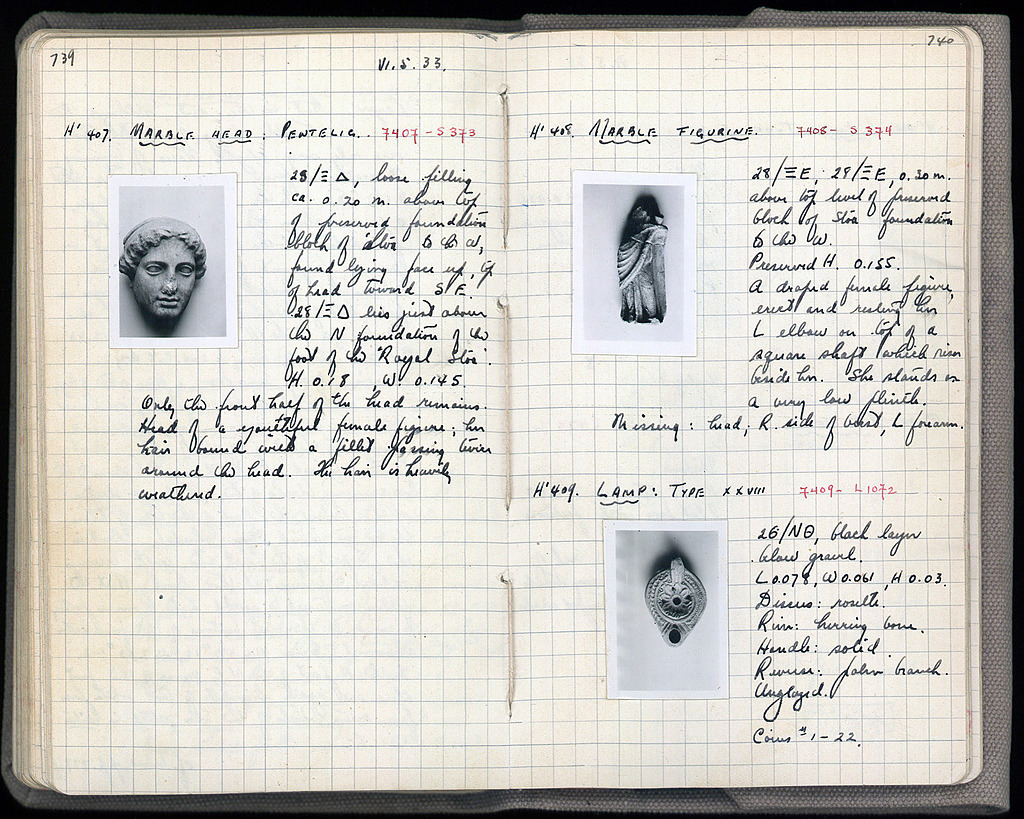 739
VI. 5. 33.
H' 407. MARBLE HEAD: PENTELIC. 7407 - S 373
28/Ξ Δ, loose filling
ca. 0.20 m. above top
of preserved foundation
block of Stoa to the W,
found lying face up, top
of head toward S E.
28/Ξ Δ lies just above
the N foundation of the
foot of the 'Royal Stoa'.
H. 0.18, W. 0.145.
Only the front half of the head remains.
Head of a youthful female figure; her
hair bound with a fillet passing twice
around the head. The hair is heavily
weathered.
740
H' 408. MARBLE FIGURINE. 7408 - S 374
28/Ξ E; 29/Ξ E, 0.30 m.
above top level of preserved
block of Stoa foundation
to the W.
Preserved H. 0.155.
A draped female figure,
erect and resting her
L elbow on top of a
square shaft which rises
beside her. She stands on
a very low plinth.
Missing: head, R. side of bust, L forearm.
H' 409. LAMP: TYPE XXVIII 7409 - L 1072
26/ΝΘ, black layer
below gravel.
L 0.078, W 0.061, H 0.03.
Discus: rosette.
Rim: herring bone.
Handle: solid
Reverse: palm branch.
Unglazed.
Coins # 1-22.